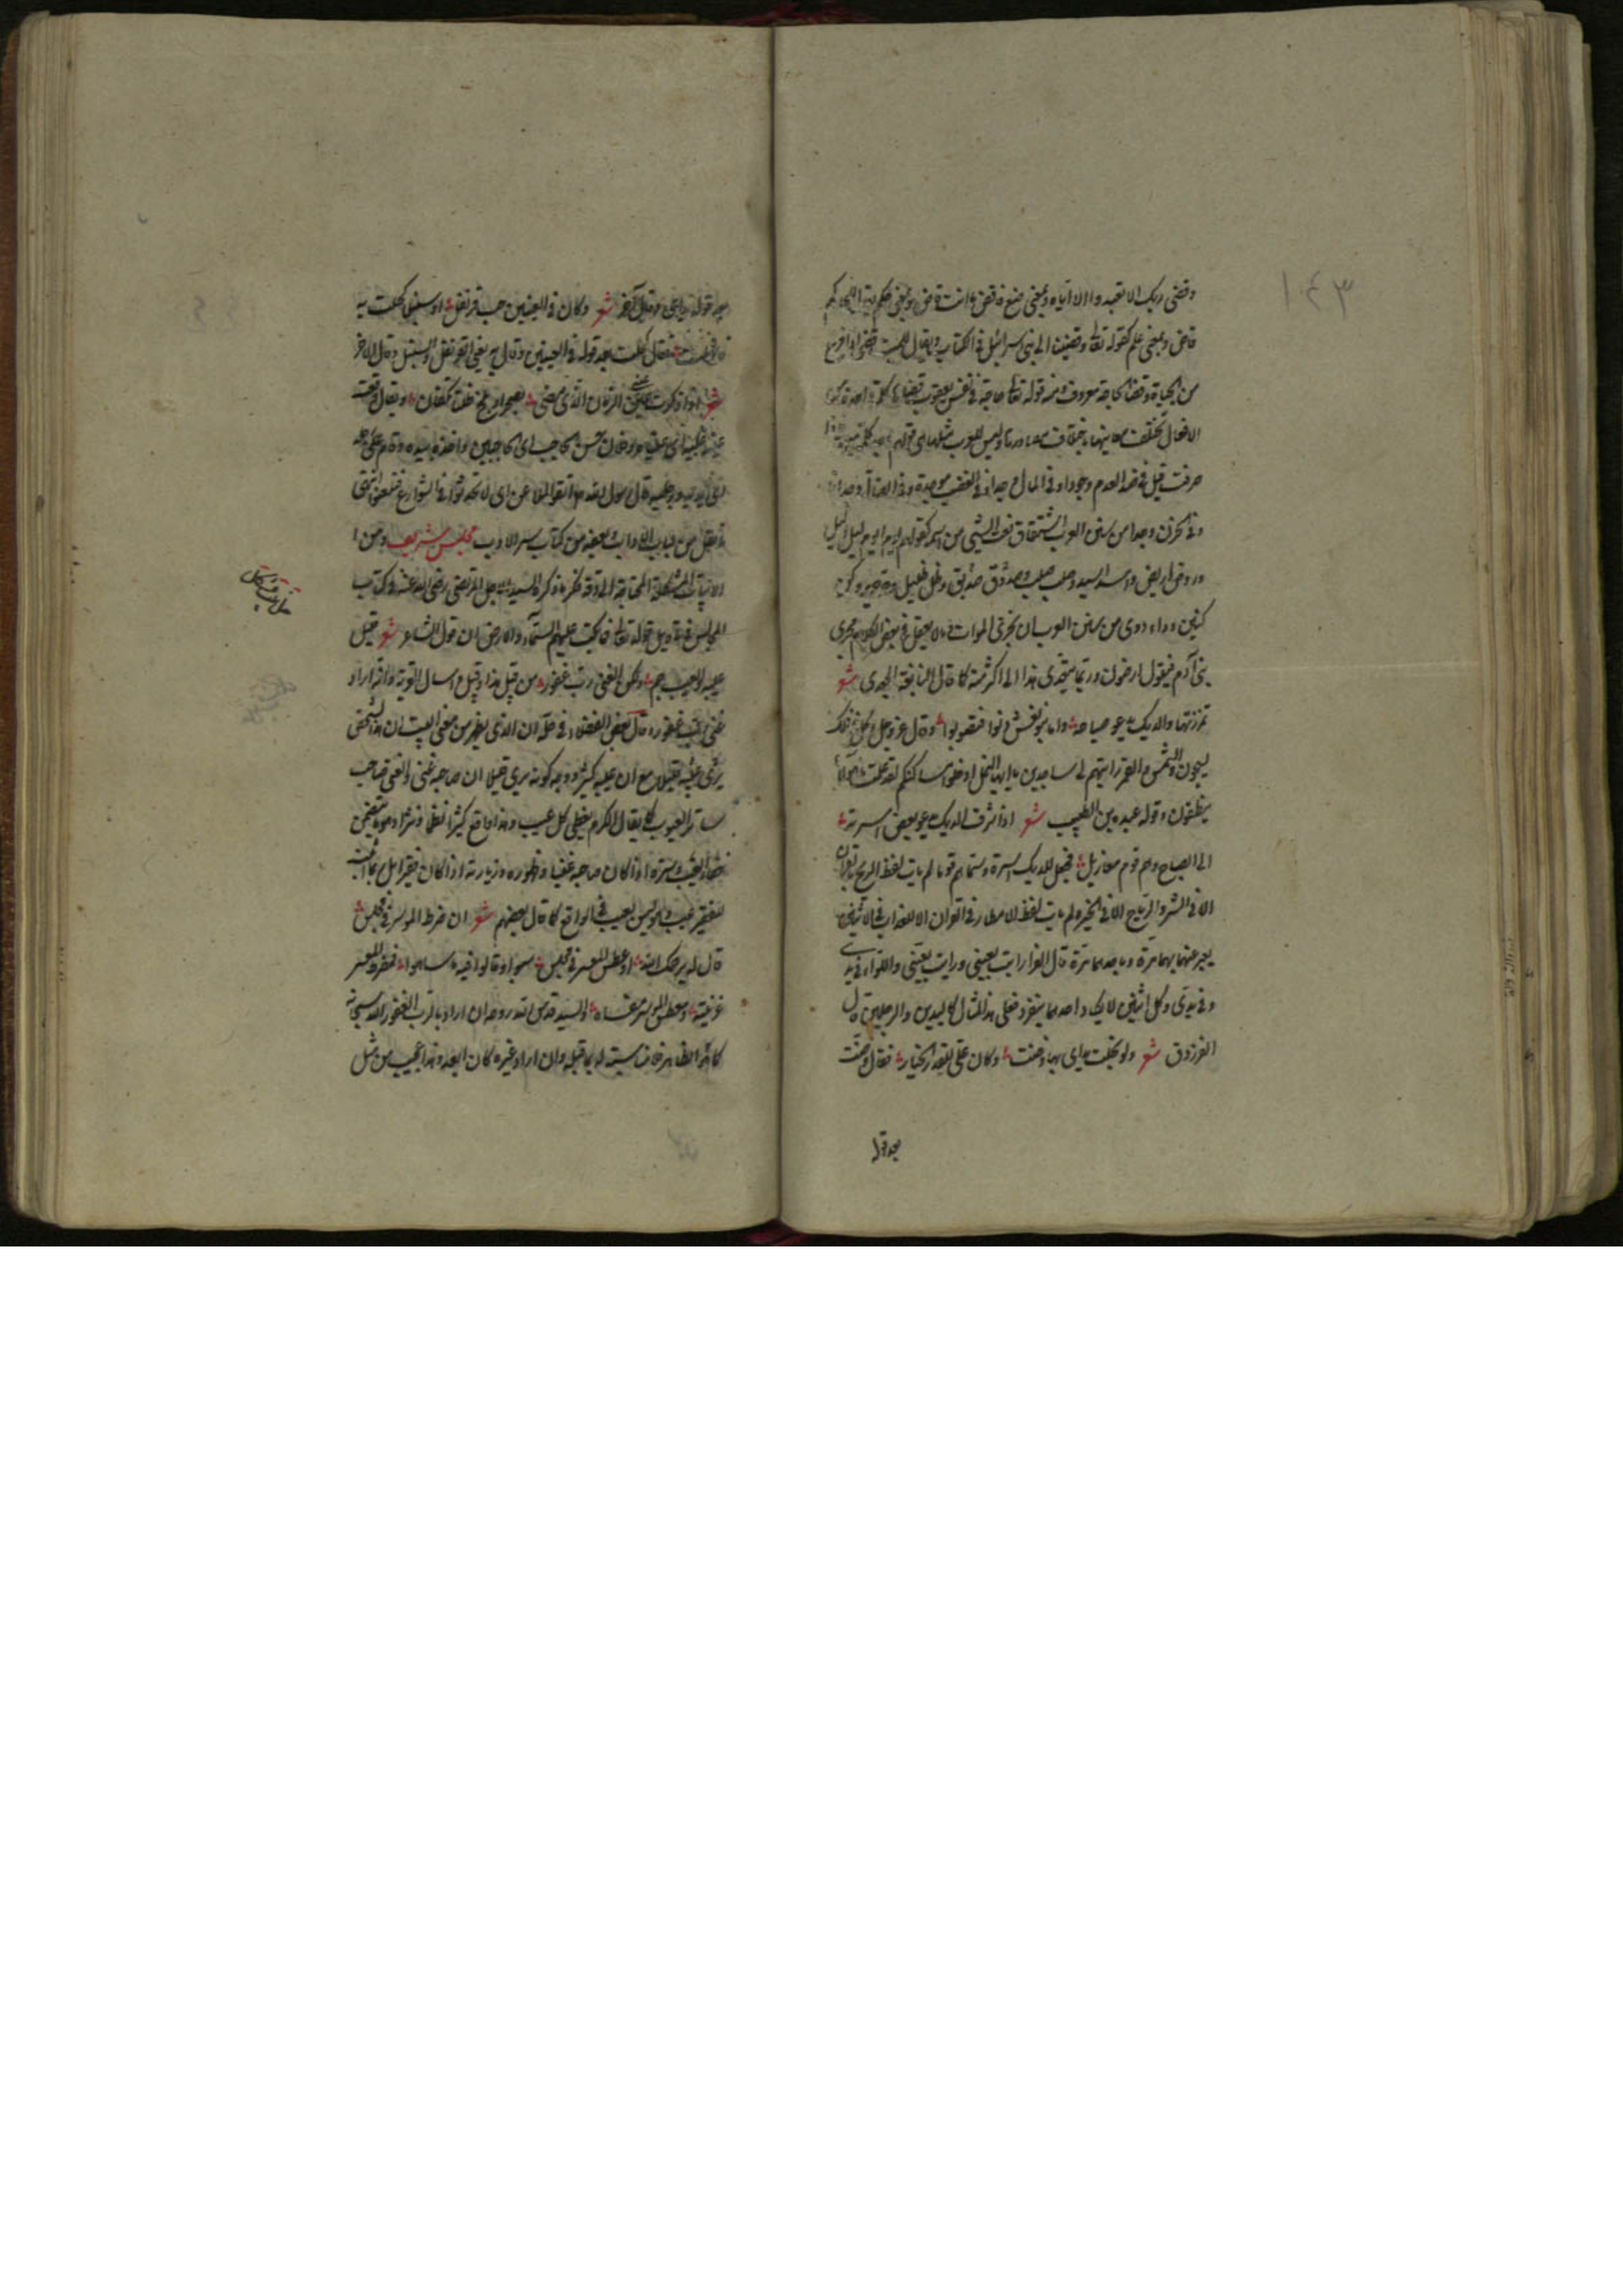 ١٤٣
وقضى ربك الا تعبدوا الا اياه وبمعنى صنع فاقض ما انت قاض وبمعنى حكم
قاض وبمعنى علم كقوله تعالى وقضينا الى بنى اسرائيل فى الكتاب ويقال للميت قضى اذا فرغ
من الحياة وقضاء الحاجة معروف ومنه قوله تعالى حاجة فى نفس يعقوب قضاها كلمة واحدة من
الافعال تختلف معانيها باختلاف مصادرها وليس للعرب مثلها هى قولهم وجد كلمة مبهمة فاذا
صرفت قيل فى ضد العدم وجودا وفى المال وجدا وفى الغضب موجدة وفى الضالة وجدانا
وفى الحزن وجدا من سنن العرب اشتقاق نعت الشئ من اسمه كقولهم يوم ايوم وليل اليل
وروض اريض واسد اسيد وصلب صليب وصدوق صديق وظل ظليل وكن
كنين وداء دوى من سنن العرب ان تجرى الموات وما لا يعقل فى بعض الكلام مجرى
بنى آدم فيقول ارضون وربما يتعدى هذا الى اكثر منه كما قال النابغة الجعدى شعر
تمززتها والديك يدعو صباحه واما بنو نعش دنوا فتصوبوا وقال عز وجل وكل فى فلك
يسبحون والشمس والقمر رايتهم لى ساجدين يا ايها النمل ادخلوا مساكنكم لقد علمت ما هؤلاء
ينطقون وقوله عبدة بن الطبيب شعر اذا شرف الديك يدعو بعض اسرته
الى الصباح وهم قوم معازيل فجعل للديك اسرة وسماهم قوما لم يات لفظ الريح فى القران
الا فى الشر والرياح الا فى الخير ولم يات لفظ الامطار فى القران الا للعذاب فى الاثنين
يعبر عنهما بهما مرة وباحدهما مرة قال الفراء رايت بعينى ورايت بعينى والدار فى يدى
وفى يدى وكل اثنين لا يكاد احدهما ينفرد فعلى هذا المثال كاليدين والرجلين قال
الفرزدق شعر ولو بخلت يداى بها وضنت وكان على للقدر الخيار فقال وضنت
بعد قوله
بعد قوله يداى وقال آخر شعر وكان فى العينين حب قرنفل او سنبلا كحلت به
فانهلت فقال كحلت بعد قوله فى العينين وقال به يعنى القرنفل والسنبل وقال الآخر
شعر اذا ذكرت عينى الزمان الذى مضى بصحراء فلج ظلتا تكفان ويقال وقعت
عينه عليه اى عيناه وفلان حسن الحاجب اى الحاجبين واخذه بيده وقام على رجله
اى بيديه ورجليه قال رسول الله اتقوا الملاعن اى لا تحدثوا فى الشوارع فتلعنوا انتهى
ما نقل من لباب الاداب بعضه من كتاب سر الادب مجلس شريف ومن
الابيات المشكلة المحتاجة الى دقة فكر ما ذكره السيد الاجل المرتضى رضى الله عنه فى كتاب
المجالس فى تاويل قوله تعالى فما بكت عليهم السماء والارض ان قول الشاعر شعر قليل
عيبه والعيب جم ولكن الغنى رب غفور من قبيل هذا وقيل واسال القرية وانه اراد
غنى رب غفور وقال بعض الفضلاء فى حله ان الذى يظهر من معنى البيت ان هذا الشخص
يرى عيبه قليلا مع ان عيبه كثير ووجه كونه يرى قليلا ان صاحبه غنى والغنى صاحب
ساتر العيوب كما يقال الكرم يغطى كل عيب وهذا واقع كثيرا نظما ونثرا
خفاء العيب وستره اذا كان صاحبه غنيا وظهوره وزيادته اذا كان فقيرا بل ربما اثبت
للفقير عيب وليس بعيب فى الواقع كما قال بعضهم شعر ان ضرط الموسر فى مجلس
قال له يرحمك الله او عطس المعسر فى مجلس سبوا وقالوا فيه ما ساهوا فمضرط المعسر
عرنينه ومعطس الموسر مفساه والسيد قدس الله روحه ان اراد بالرب الغفور الله سبحانه
كما هو الظاهر فلا مناسبة له بما قبله وان اراد غيره كان ابعد وهذا عجيب من مثل